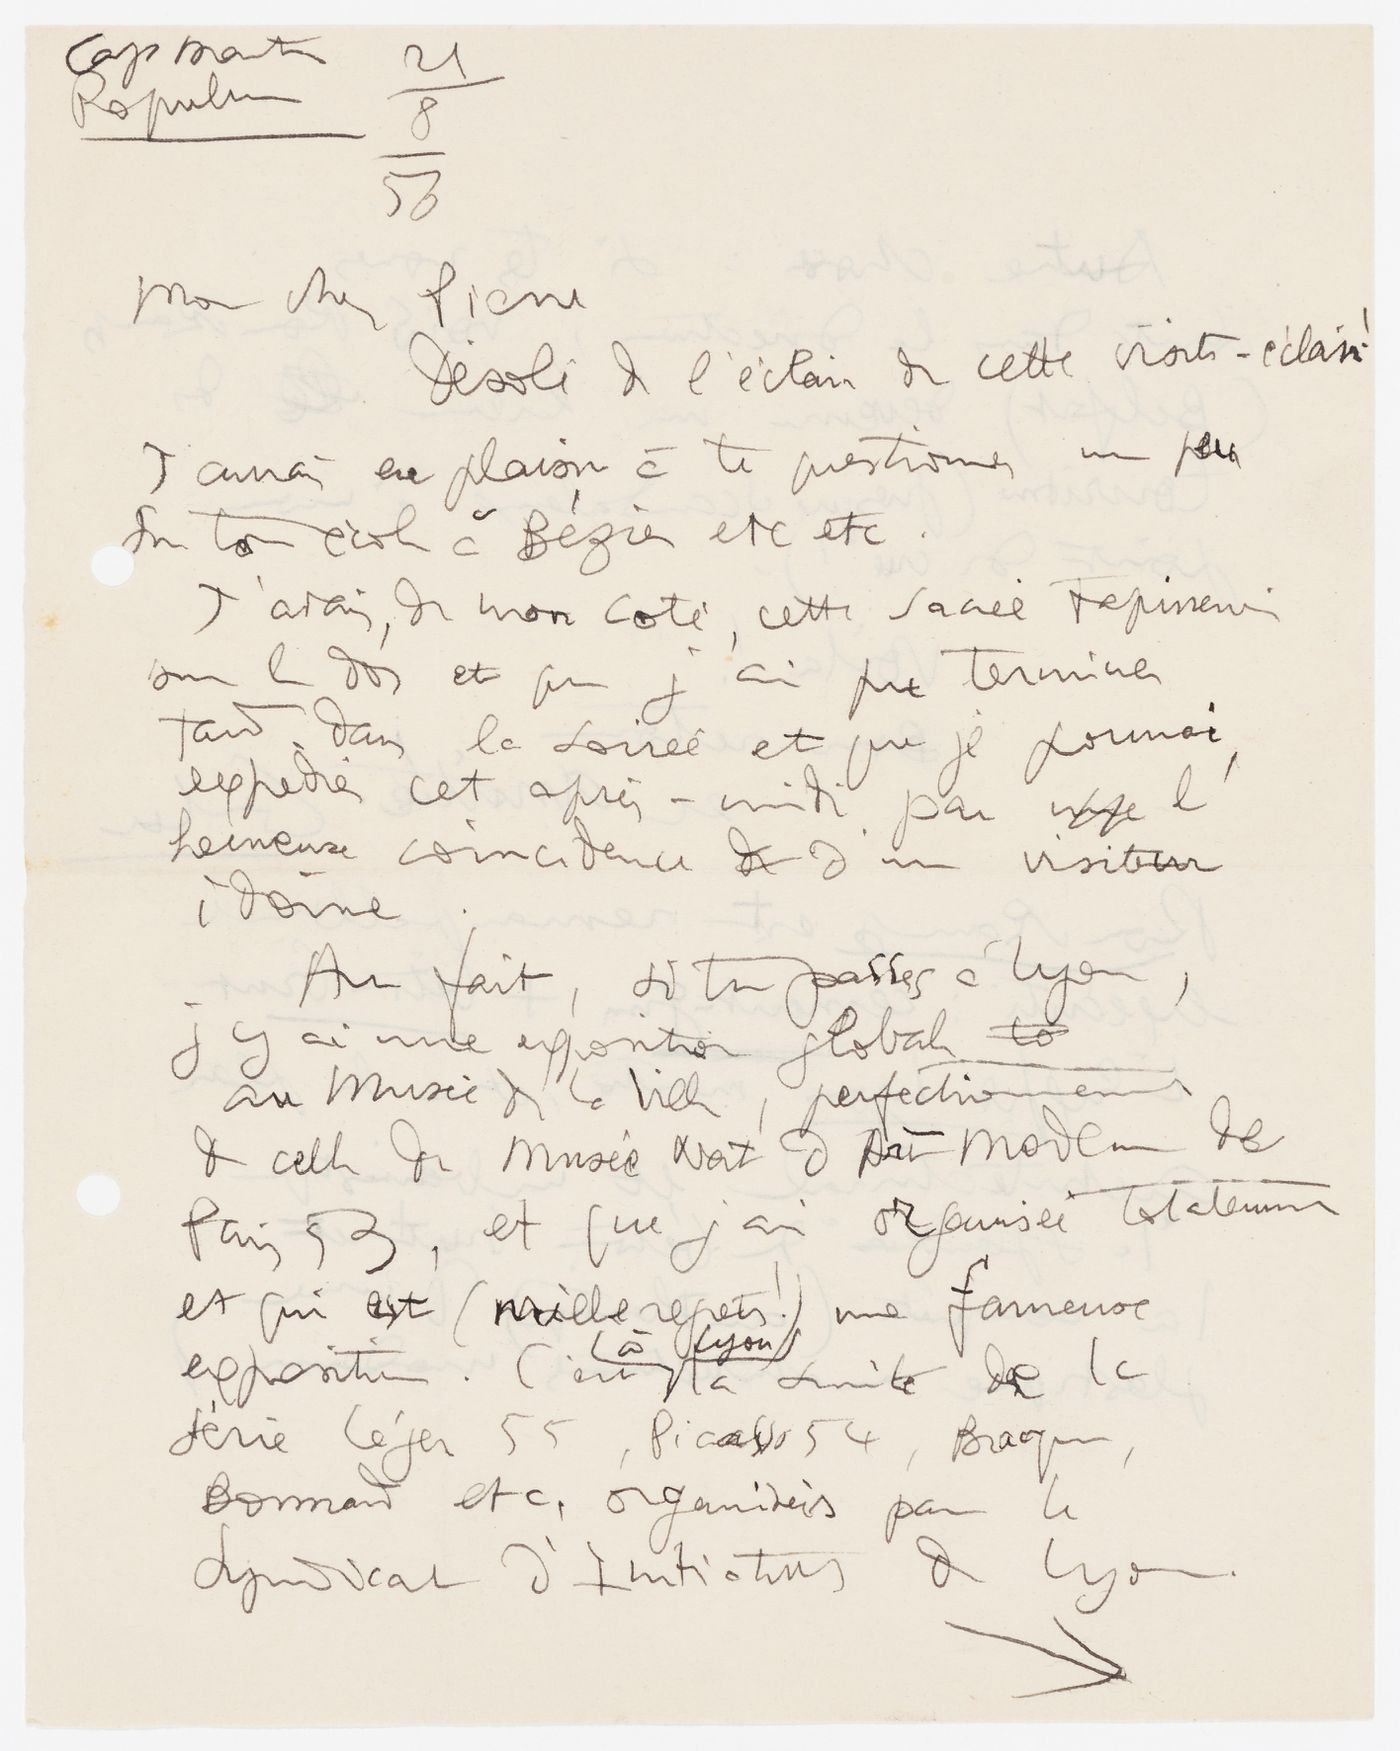 Cap Martin
Roquebrune
21
8
56
Mon cher Pierre
Désolé de l'éclair de cette visite-éclair!
J'aurais eu plaisir à te questionner un peu
sur ton école à Béziers etc etc.
J'avais, de mon coté, cette sacrée tapisserie
sur le dos et que j'ai pu terminer
tard dans la soirée et que je pourrai,
expédier cet après-midi par l'
heureuse coincidence de d'un visiteur
idoine.
Au fait, si tu passes à Lyon,
j'y ai une exposition globale to
au Musée de la Ville, perfectionnement
de celle du Musée Nat d'Art Moderne de
Paris 53, et que j'ai organisée totalement
et qui est (mille regrets!) une fameuse
exposition. C'est (à Lyon) la suite de la
série Léger 55, Picasso 54, Braque,
Bonnard etc, organisées par le
Syndicat d'Initiatives de Lyon.